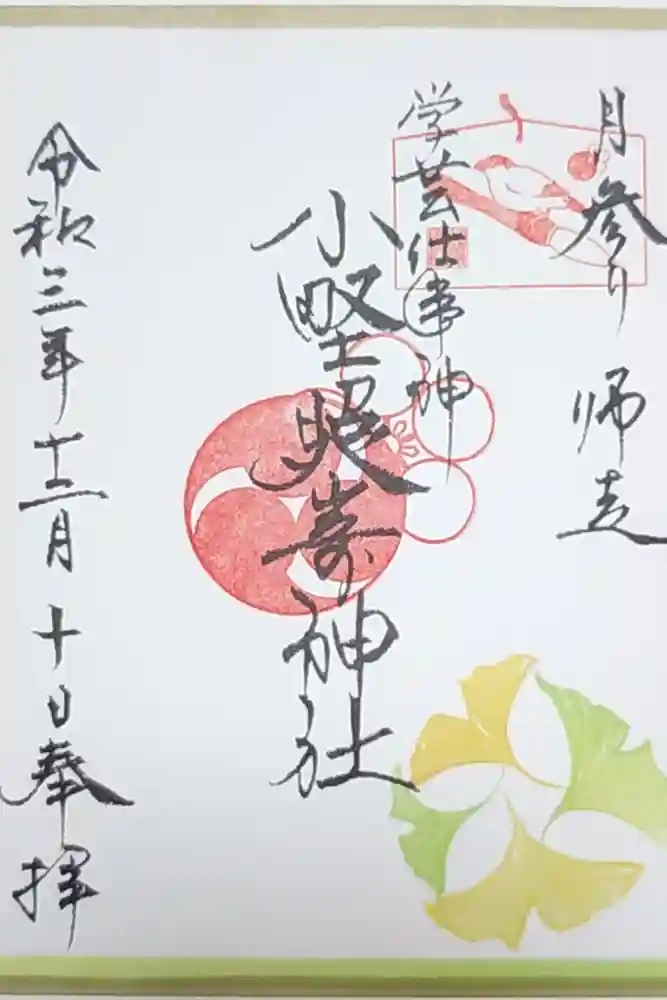 月参り 師走
学芸仕事神
小野照崎神社
令和三年十二月十日奉拝